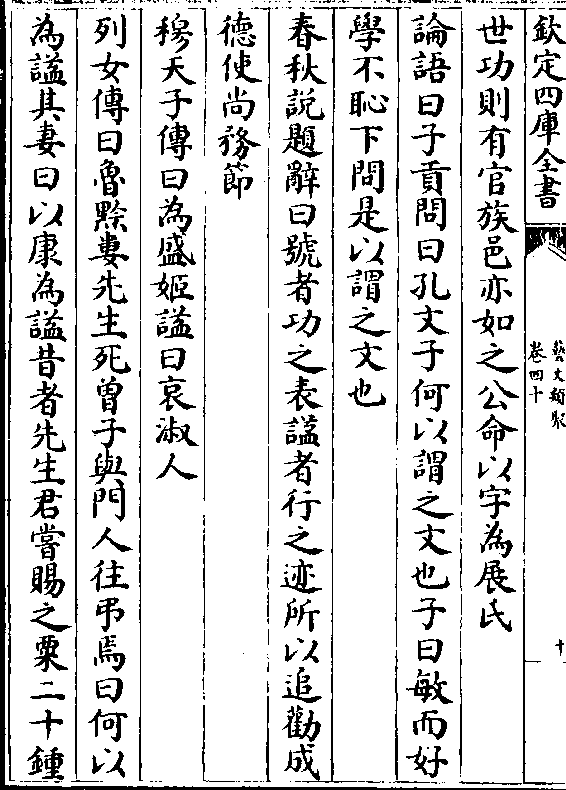 欽定四庫全書
藝文類聚
卷四十
十
世功則有官族邑亦如之公命以字為展氏
論語曰子貢問曰孔文子何以謂之文也子曰敏而好
學不恥下問是以謂之文也
春秋説題辭曰號者功之表諡者行之迹所以追勸成
德使尚務節
穆天子傳曰為盛姬諡曰哀淑人
列女傳曰魯黔婁先生死曾子與門人往弔焉曰何以
為諡其妻曰以康為諡昔者先生君嘗賜之粟二十鍾